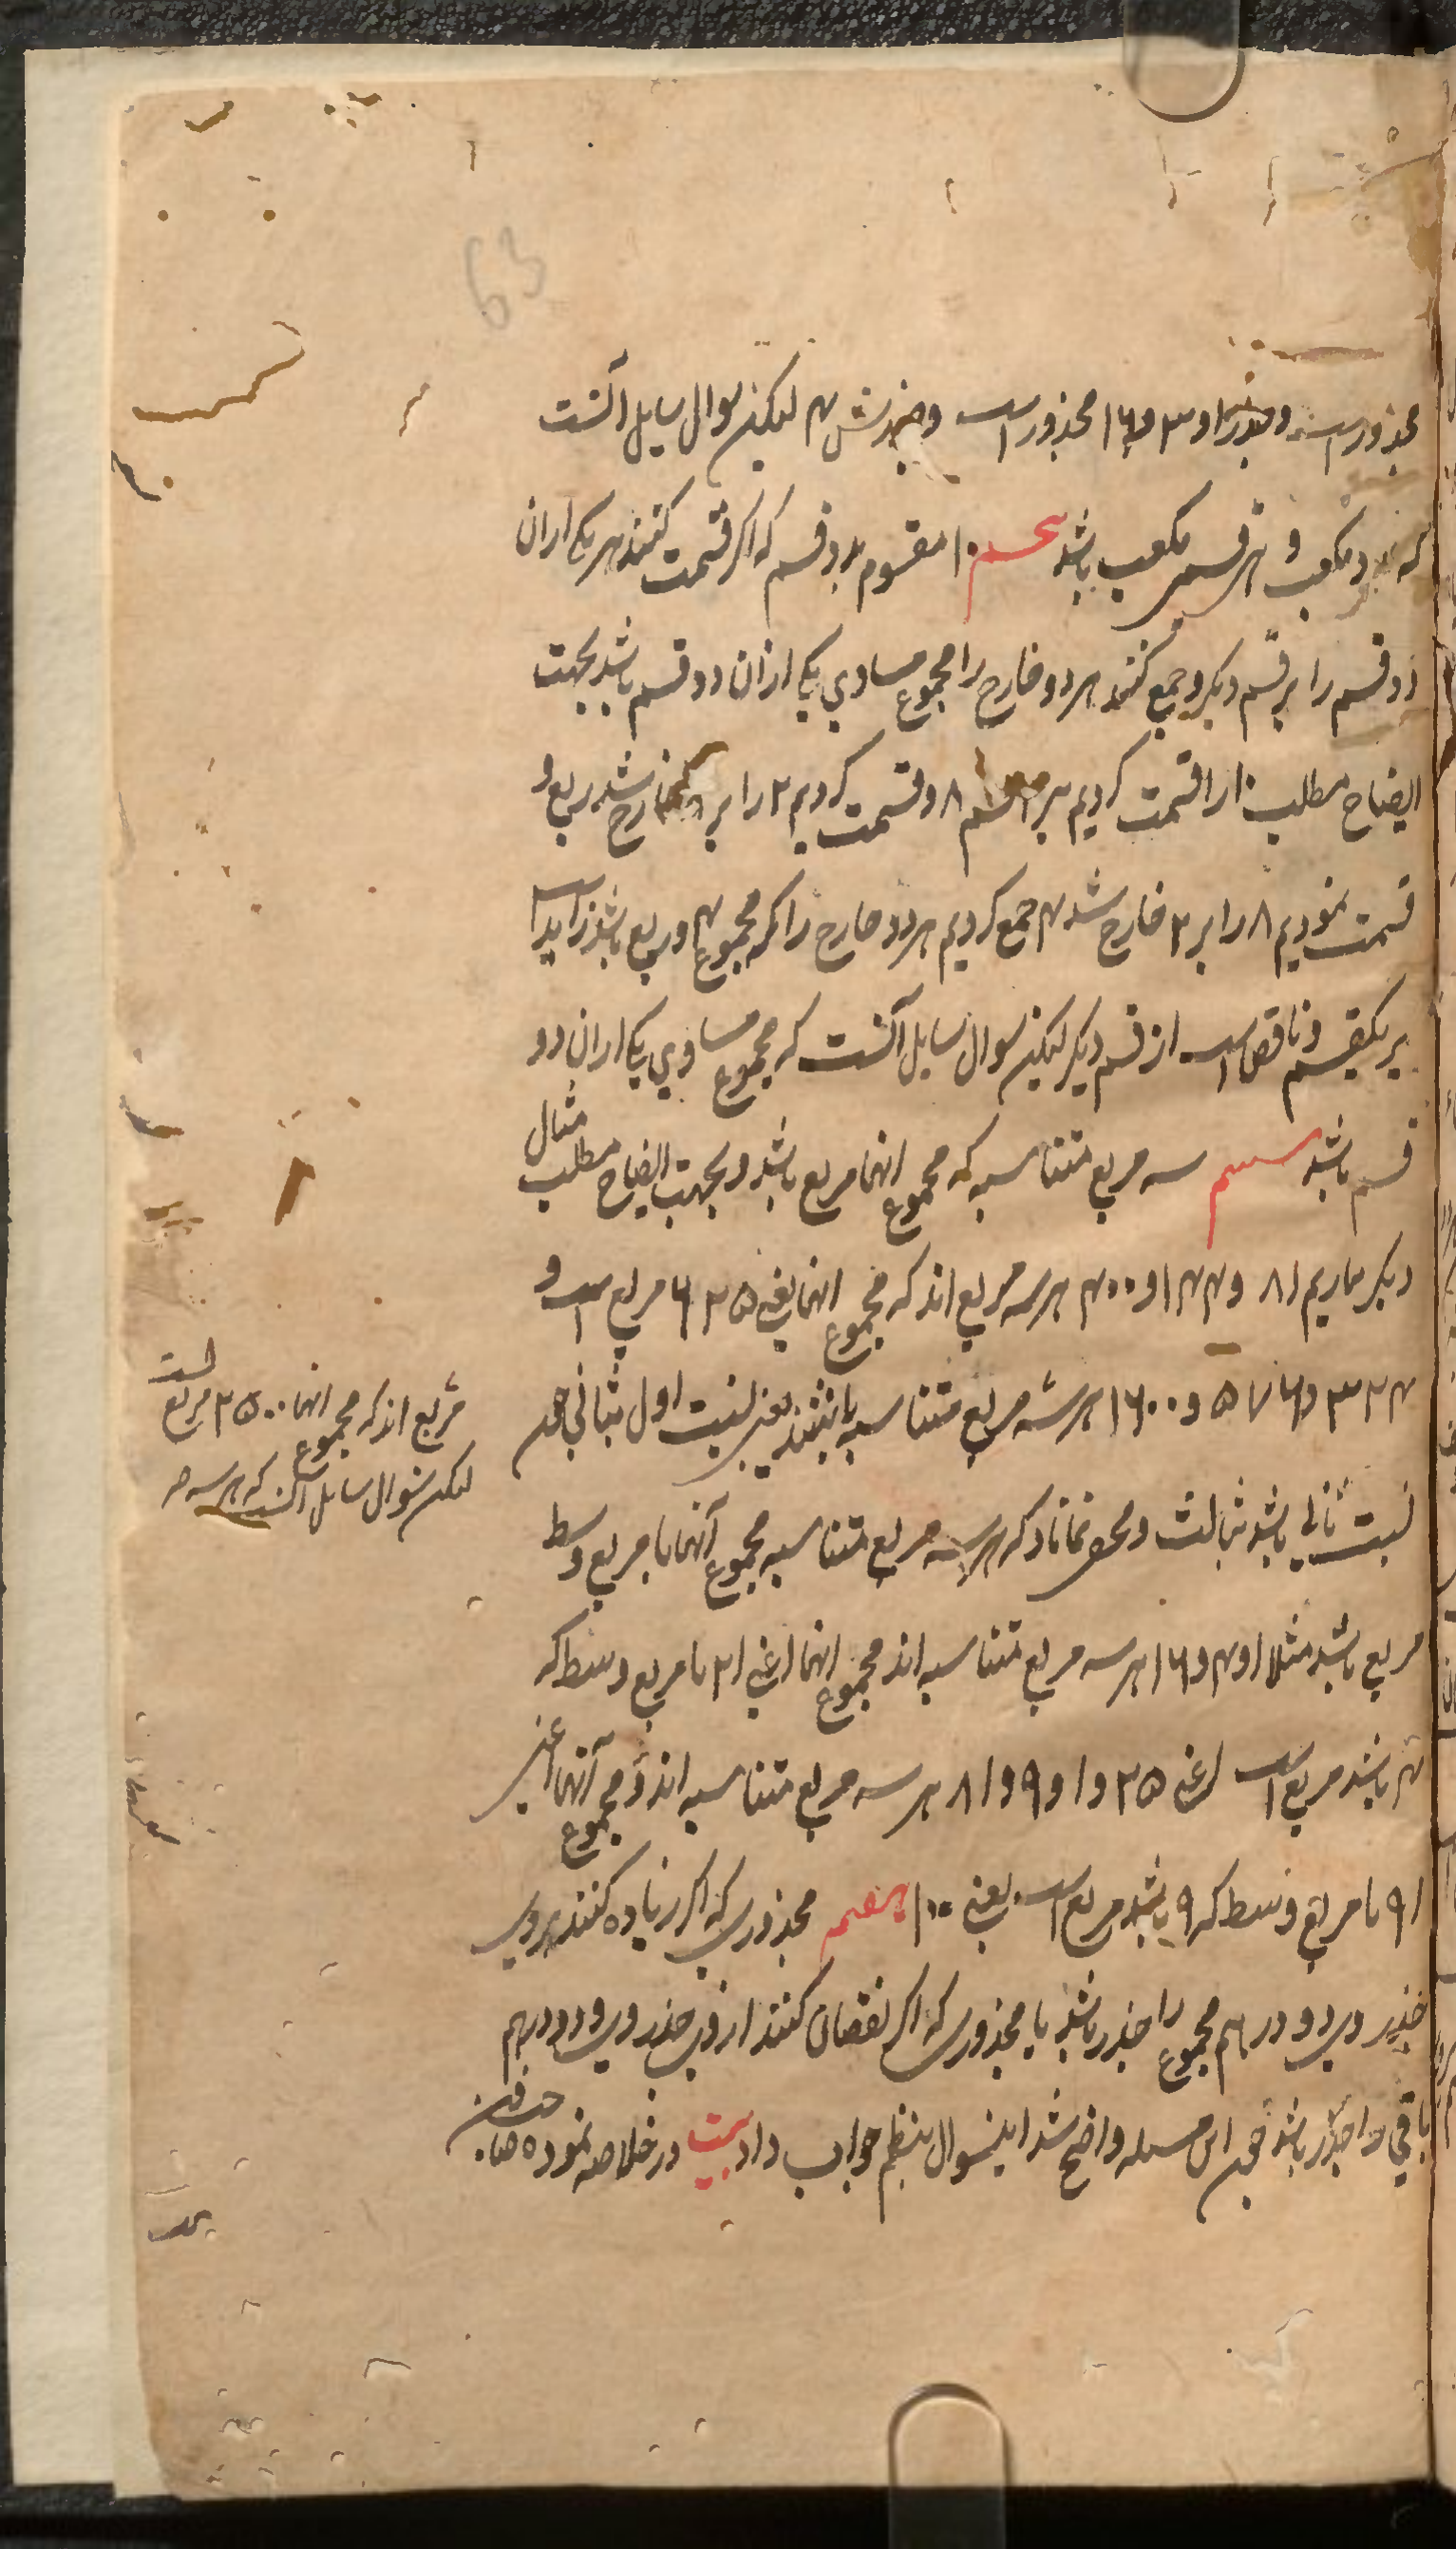 63
مجذور است و جذر او ۳ و ۱۶ مجذور است و جذرش ۴ لیکن سوال سایل آنست
که مکعب و هر قسم مکعب باشد پنجم ۱۰ مقسوم بدو قسم که اکر قسمت کنند هر یک از ان
دو قسم را بر قسم دیکر و جمع کنند هر دو خارج را مجموع مساوی یکی از ان دو قسم باشد بجهت
ایضاح مطلب ۱۰ را قسمت کردیم بر ۲ و ۸ و قسمت کردیم ۲ را بر ۸ خارج شد ربع و
قسمت نمودیم ۸ را بر ۲ خارج شد ۴ جمع کردیم هر دو خارج را که مجموع ۴ و ربع باشد زاید است
بر یکقسم و ناقص است از قسم دیکر لیکن سوال سایل آنست که مجموع مساوی یکی از ان دو
قسم باشد ششم سه مربع متناسبه که مجموع انها مربع باشد و بجهت ایضاح مطلب مثال
دیکر بیاریم ۸۱ و ۱۴۴ و ۴۰۰ هر سه مربع اند که مجموع انها یعنی ۶۲۵ مربع است و
۳۲۴ و ۵۷۶ و ۱۶۰۰ هر سه مربع متناسبه باشند یعنی نسبت اول بثانی چون
نسبت ثانی باشد بثالث و مخفی نماناد که هر سه مربع متناسبه مجموع آنها با مربع وسط
مربع باشد مثلا ۱ و ۴ و ۱۶ هر سه مربع متناسبه اند مجموع انها اعنی ۲۱ با مربع وسط که
۴ باشد مربع است اعنی ۲۵ و ۱ و ۹ و ۸۱ هر سه مربع متناسبه اند و مجموع آنها اعنی
۹۱ با مربع وسط که ۹ باشد مربع است یعنی ۱۰۰ هفتم مجذوری که اکر زیاده کنند بر وی
جذر وی و دو درهم مجموع را جذر باشد یا مجذوری که اکر نقصان کنند از وی جذر وی و دو درهم
باقی را جذر باشد چون این مسله واضح شد این سوال بنظم جواب داد بیت در خلاصه نموده
مربع اند که مجموع انها ۲۵۰۰ مربع است
لیکن سوال سایل آنست که هر سه